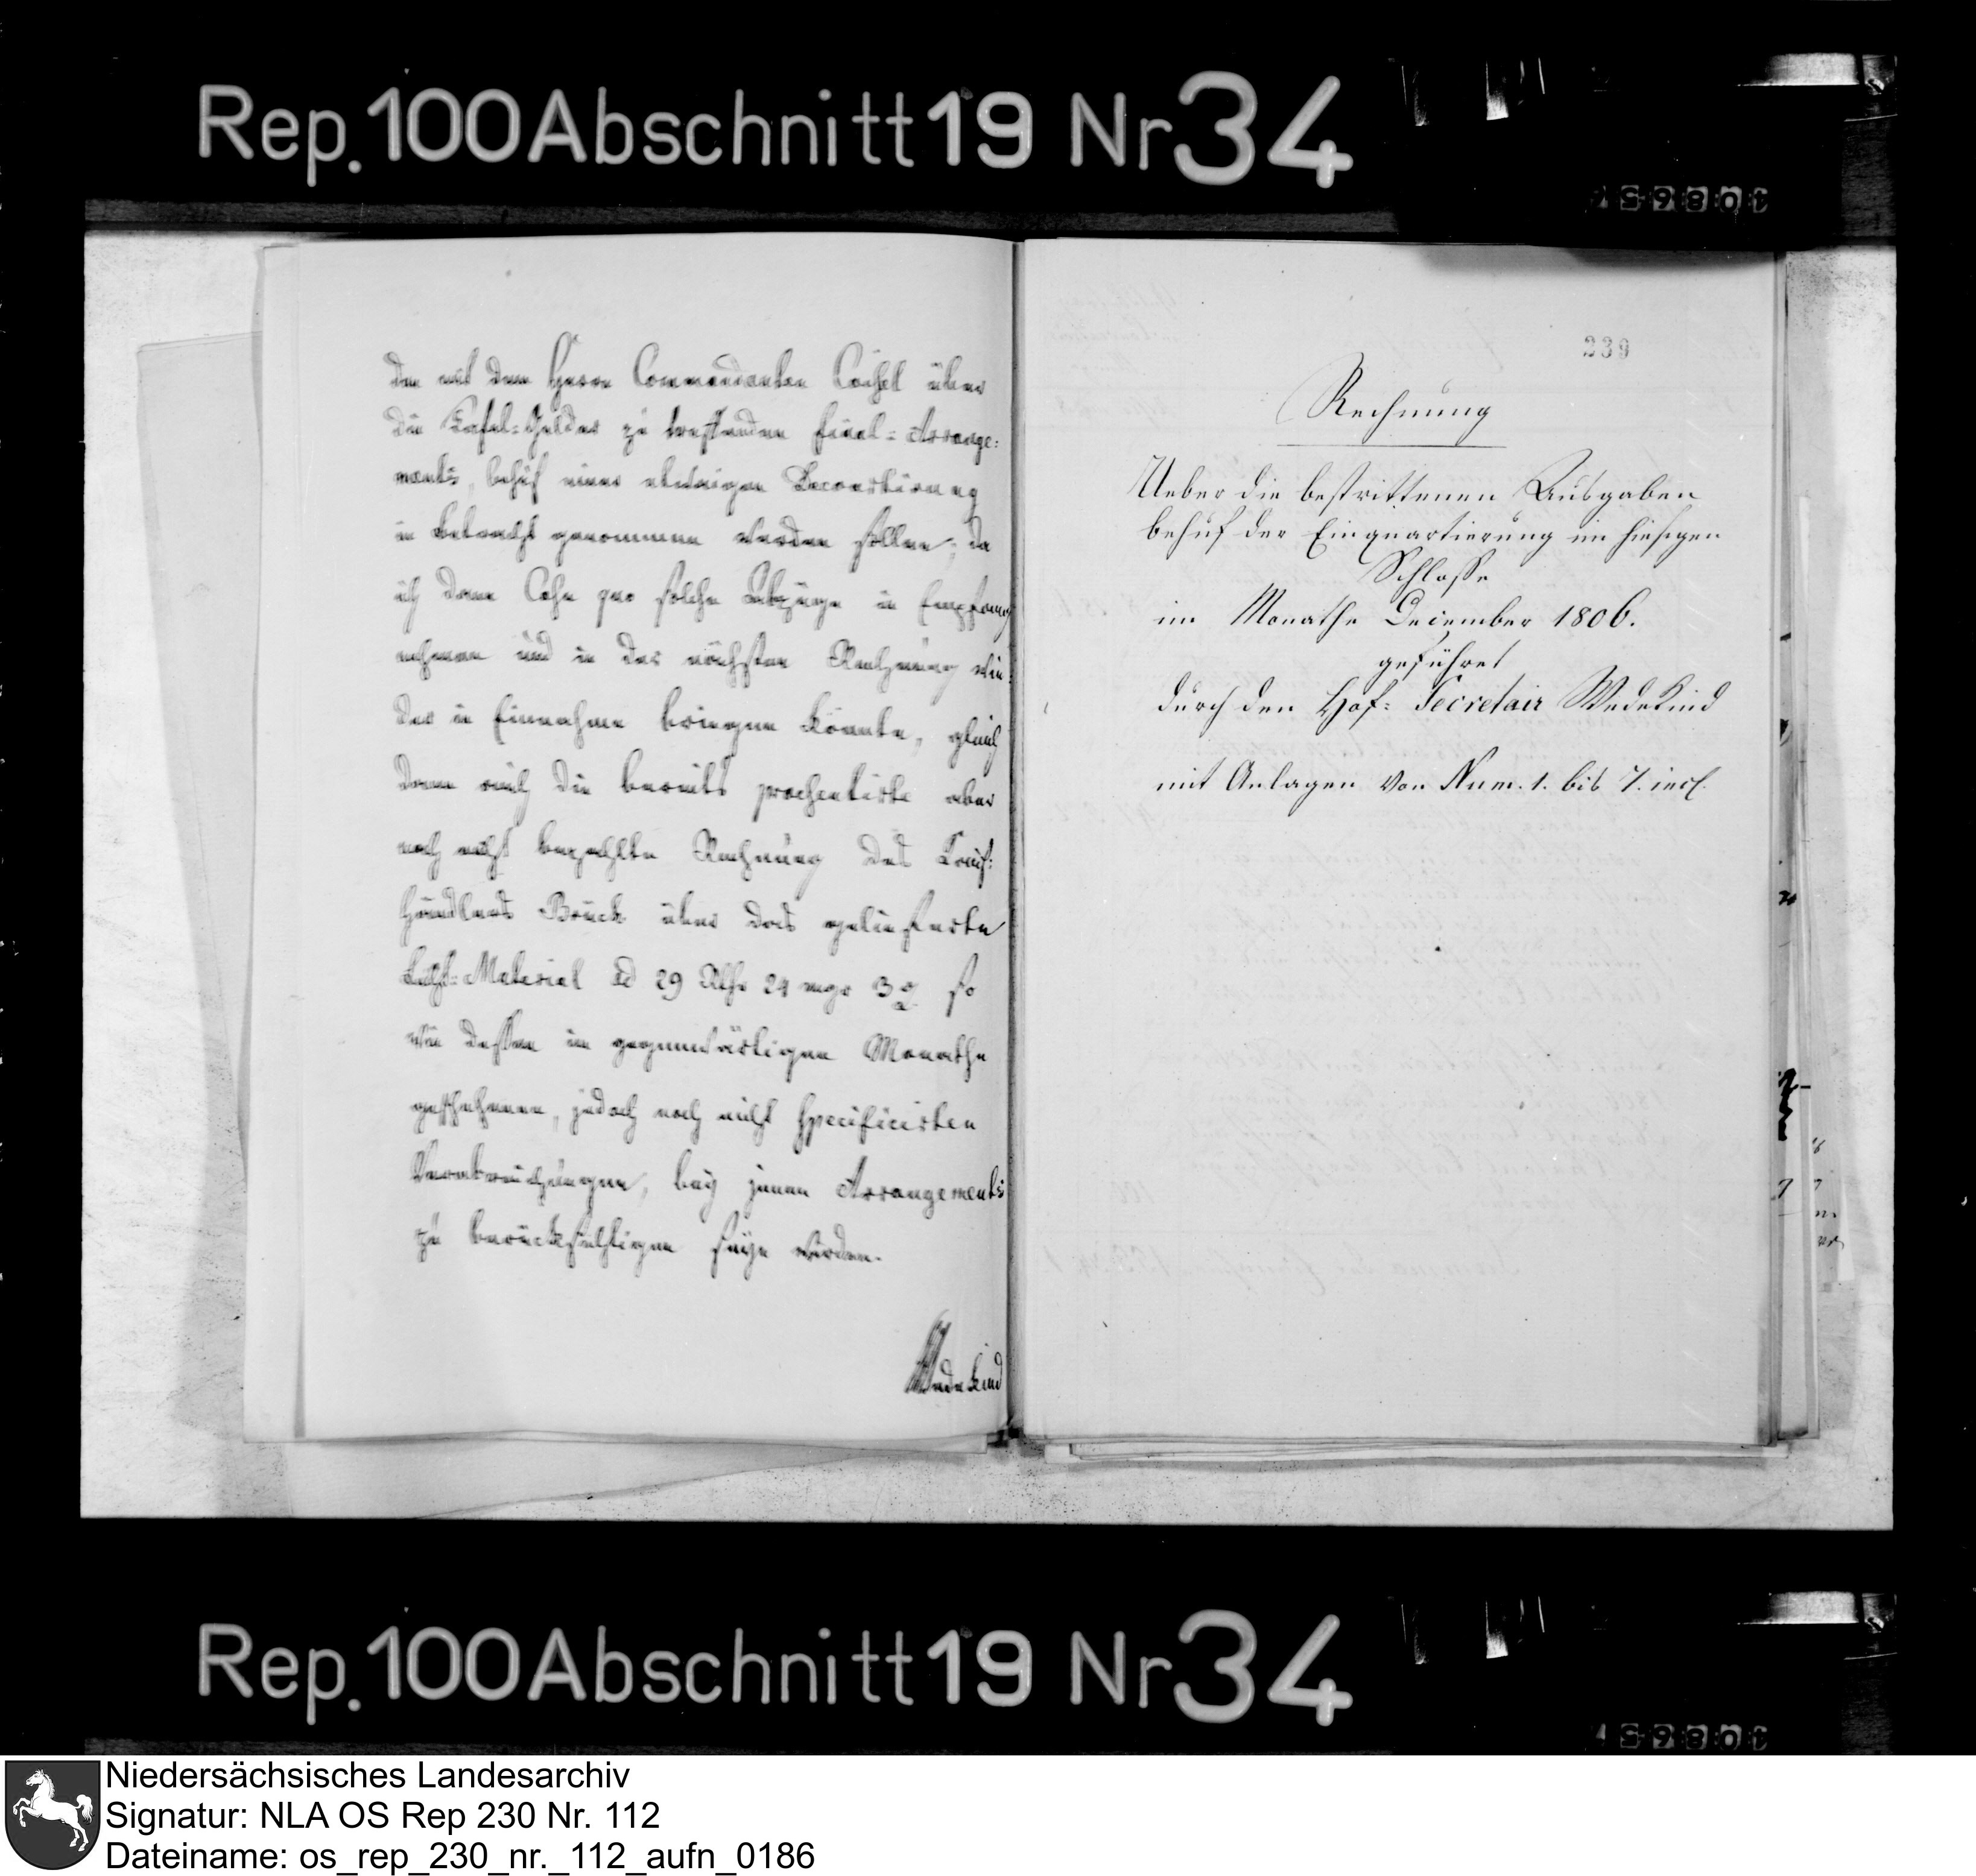 Rep. 100 Abschnitt 19 Nr 34
den mit dem Herrn Commandanten über
die Tafel-Gelder zu treffenden final-Arrange-
ments, behuf einer etwaigen
in Betracht genommen werden sollen; da
ich dann solche in Empfang
nehmen und in der nächsten Rechnung wie-
der in Einnahme bringen könnte, gleich
dann auch die bereits aber
noch nicht bezahlte Rechnung des Kauf-
händlers Brück über das gelieferte
Licht-Material ad 29 Rthr 24 mgr 3 so
wie dessen im gegenwärtigen Monathe
geschehenen, jedoch noch nicht specificirten
bey jenen Arrangements
zu berücksichtigen seyn würden.
Wedekind
239
Rechnung
Ueber die bestrittenen Ausgaben
behuf der Einquartierung im hiesigen
Schlosse
im Monathe December 1806.
geführet
durch den Hof-Secretair Wedekind
mit Anlagen von Num. 1. bis 7. incl.
Rep. 100 Abschnitt 19 Nr 34
Niedersächsisches Landesarchiv
Signatur: NLA OS Rep 230 Nr. 112
Dateiname: os_rep_230_nr._112_aufn_0186